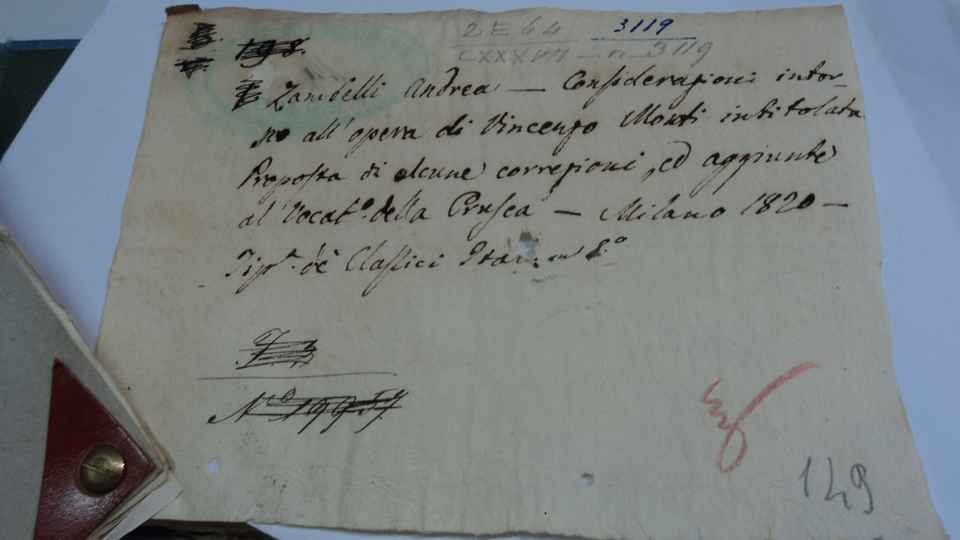 2 E 64 3119
CXXXVII - n. 3119
198.
Zambelli Andrea — Considerazioni intor-
no all'opera di Vincenzo Monti intitolata
Proposta di alcune correzioni, ed aggiunte
al Vocab.o della Crusca — Milano 1820 —
Tip.a de' Classici in 8.o
N.o 19957
149